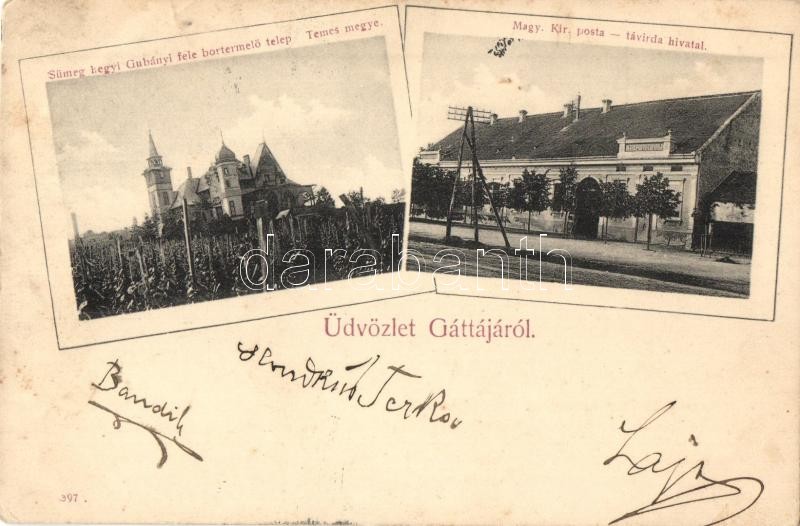 Sümeg hegyi Gubányi féle bortermelő telep Temes megye.
Magy. Kir. posta — távirda hivatal.
darabanth
Üdvözlet Gáttájáról.
Bandik
Terka
Lajos
397.